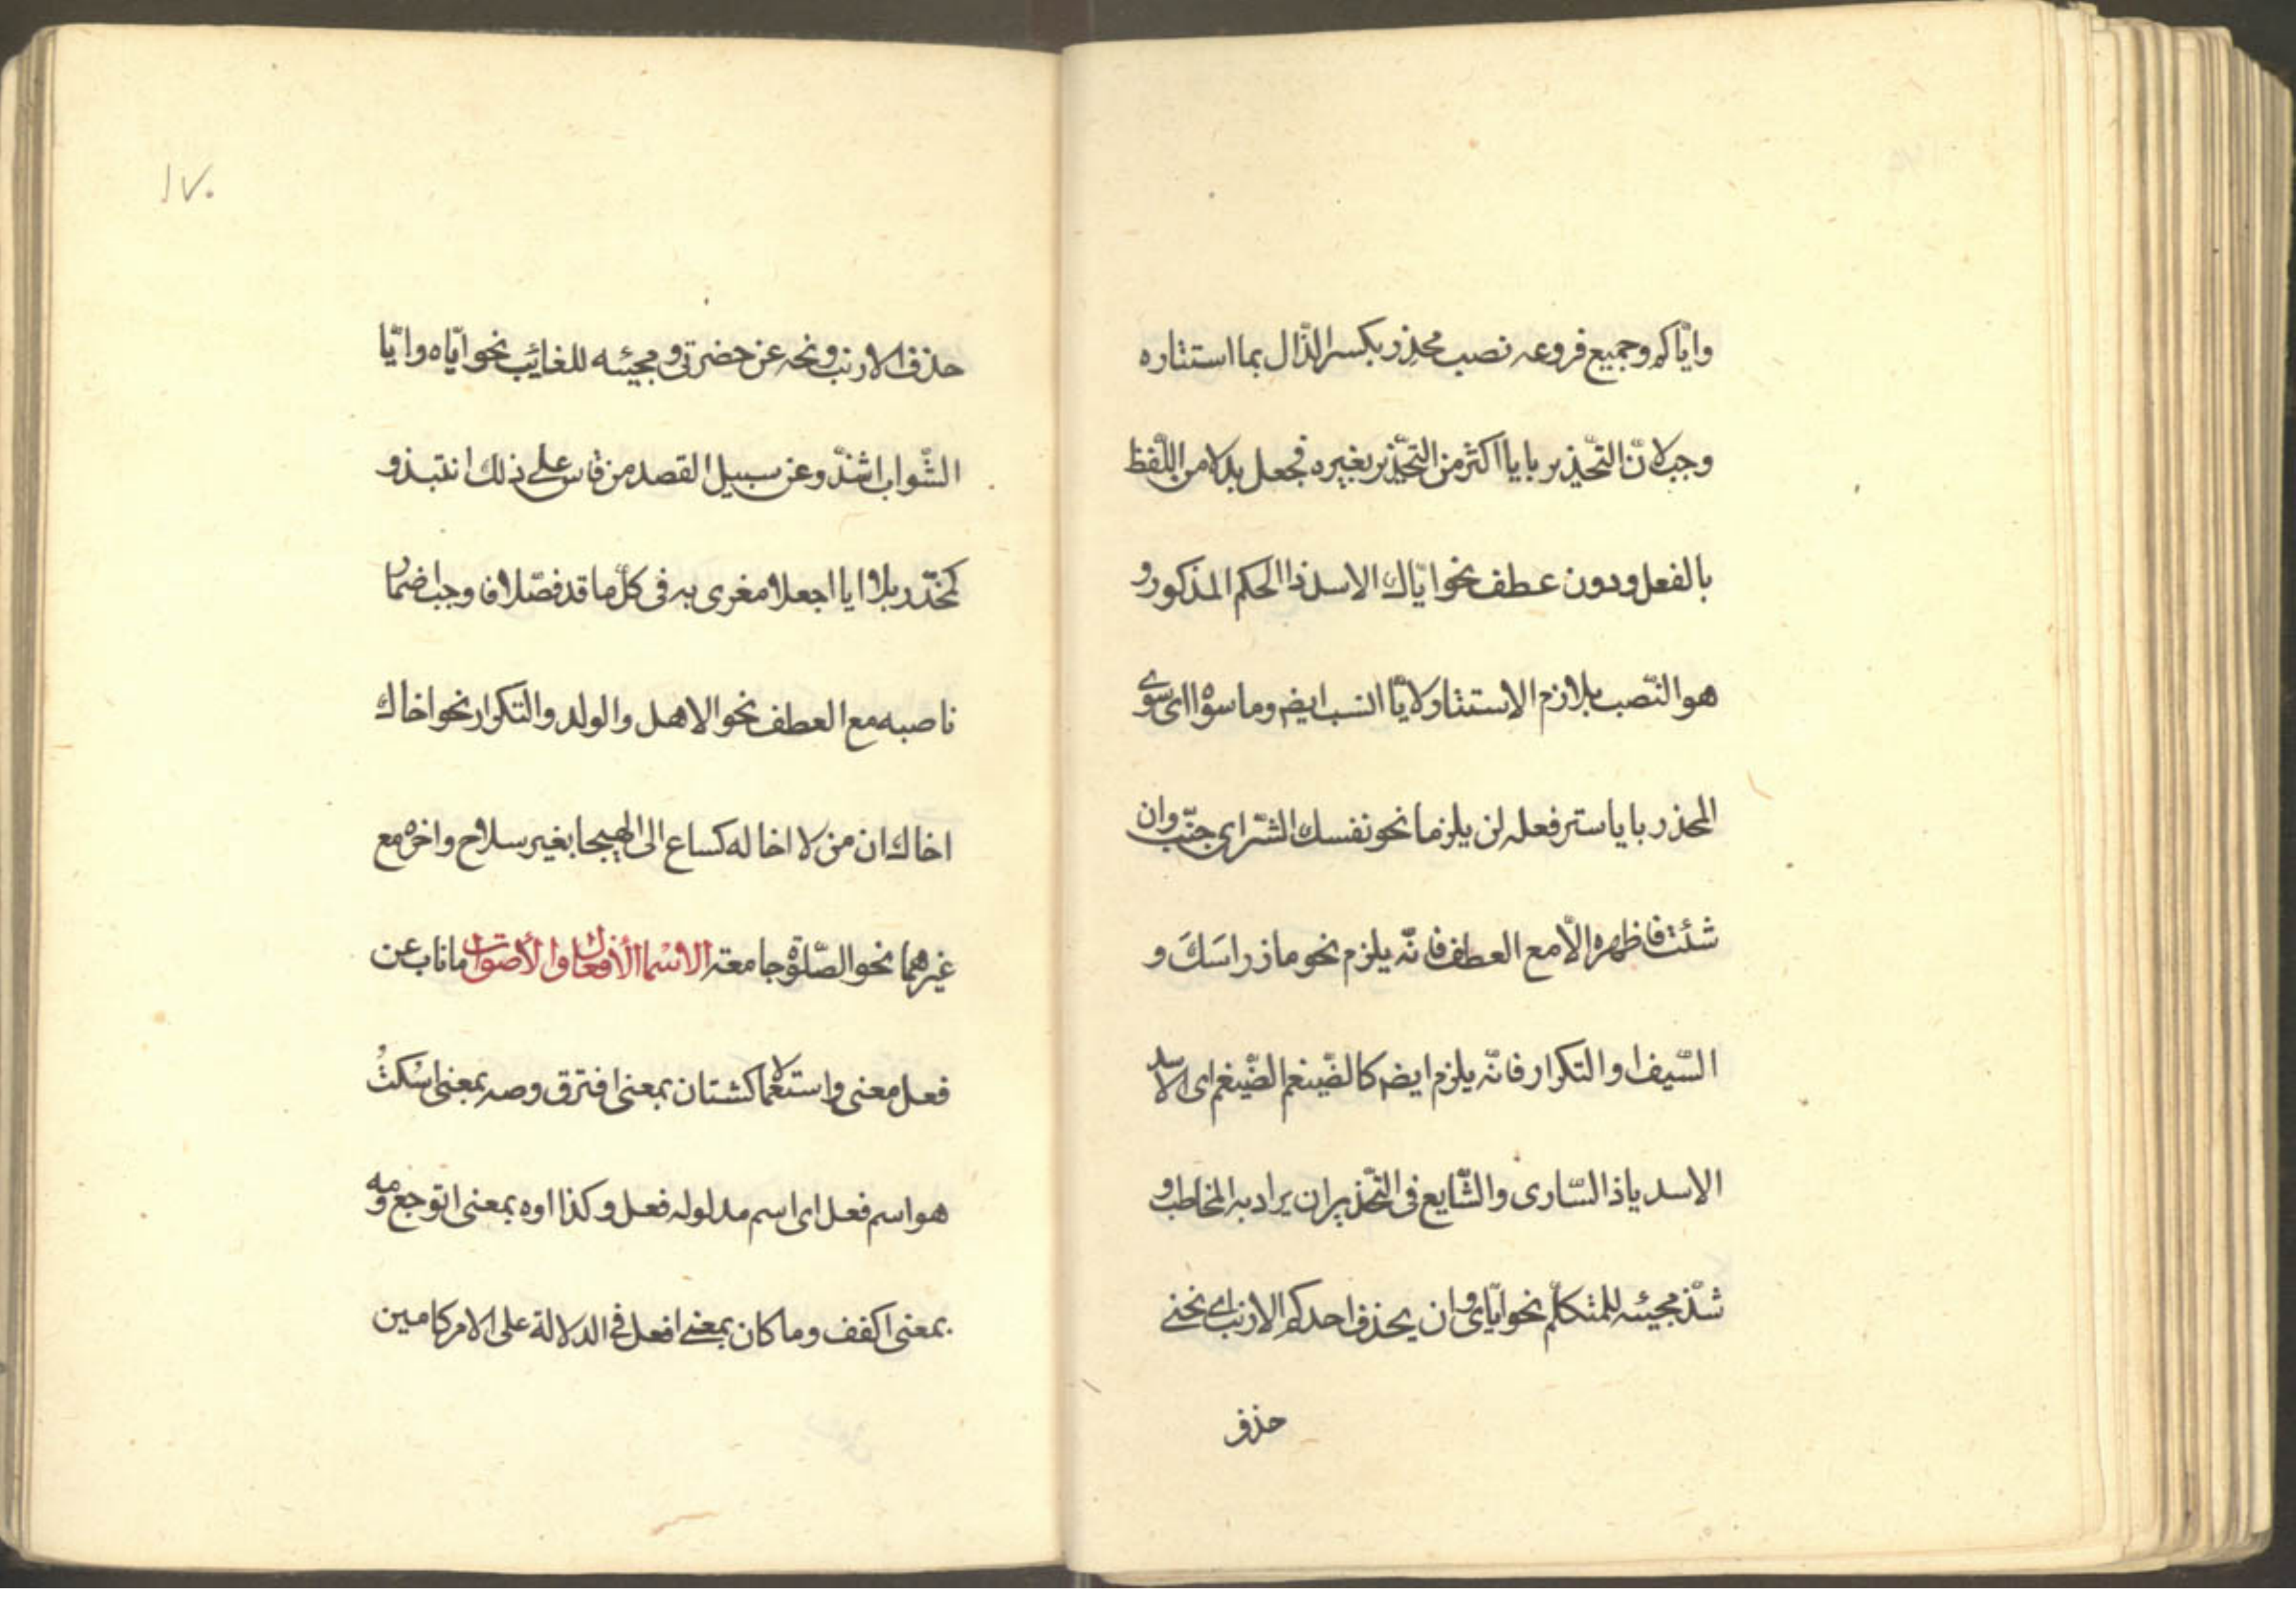 واياكم وجميع فروعه نصب محذر بكسر الذّال بما استتاره
وجب لانّ التّحذير بايا اكثر من التّحذير بغيره فجعل بدلا من اللّفظ
بالفعل ودون عطف نحو ايّاك الاسد ذا الحكم المذكور و
هو النّصب بلازم الاستتار لايّا انسب ايضم وما سواه اى سوى
المحذر بايا ستر فعله لن يلزما نحو نفسك الشّر اى جنّب وان
شئت فاظهره الاّ مع العطف فانّه يلزم نحو ماز راسَكَ و
السّيف او التكرار فانّه يلزم ايضم كالضّيغم الضّيغم اى الاسد
الاسد ياذ السّارى والشّايع فى التّحذير ان يراد به المخاطب و
شذّ مجيئه للمتكلّم نحو ايّاى وان يحذف احدكم الارنب اى نحنى
حذف
١٧٠
حذف الارنب ونحه عن حضرتى ومجيئه للغائب نحو ايّاه وايّا
الشّواب اشذّ وعن سبيل القصد من قاس على ذلك انتبذ و
كمحذّر بلا ايا اجعلا مغرى به فى كلّ ما قد فصّلا فاوجب اضمار
ناصبه مع العطف نحو الاهل والولد والتكرار نحو اخاك
اخاك ان من لا اخا له كساع الى الهيجا بغير سلاح واخره مع
غيرهما نحو الصّلوة جامعته الاسْما الأفعال والأصوات ما ناب عن
فعل معنى واستعمالا كشتان بمعنى افترق وصه بمعنى اسْكتْ
هو اسم فعل اى اسم مدلوله فعل وكذا اوه بمعنى اتوجع ومه
بمعنى اكفف وما كان بمعنى افعل فى الدلالة على الامر كامين